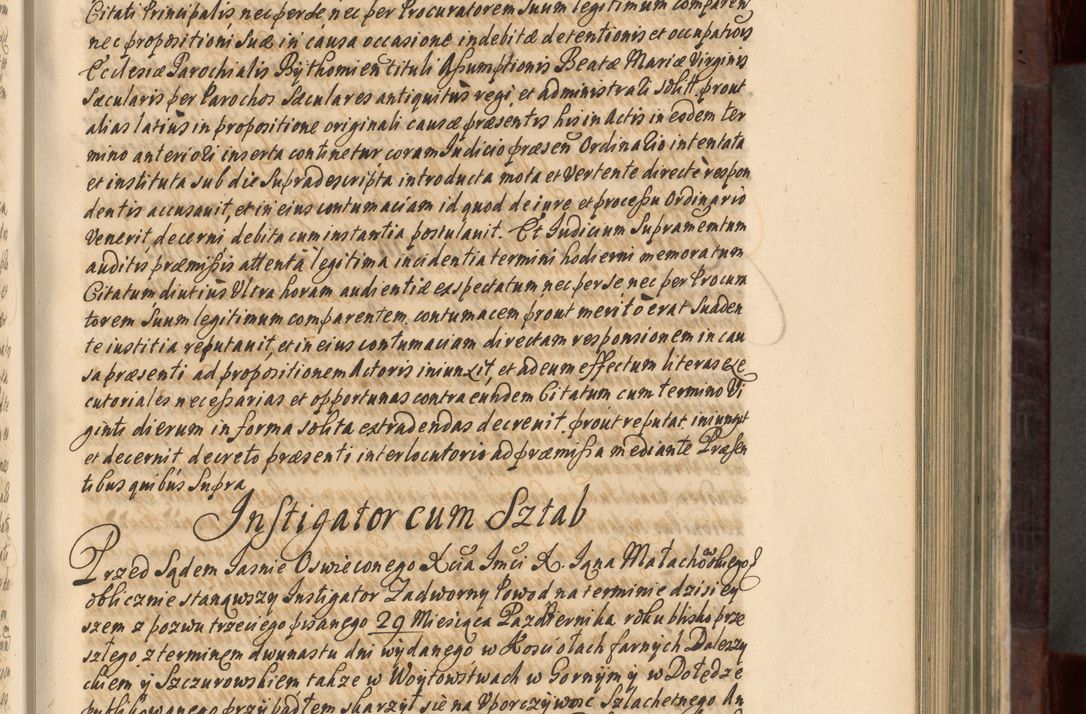 Citati Principalis nec per se nec per Procuratorem Suum legitimum comparen
nec propositioni Suæ in causa occasione indebitæ detentionis et occupationis
Ecclesiæ Parochialis Bythomien tituli Assumptionis Beatæ Mariæ Virginis
Sæcularis per Parochos Sæculares antiquitus regi, et administrali solitt. prout
alias latius in propositione originali causæ præsentis his in Actis in eodem ter
mino anteriori inserta continetur coram Iudicio præsen Ordinario intentata
et instituta sub die Supradescripta introducta mota et vertente directe respon
dentis accusauit, et in eius contumaciam id quod de iure et processu Ordinario
Venerit, decerni debita cum instantia postulauit. Et Iudicium Supramentum
auditis præmissis attenta legitima incidentia termini hodierni memoratum
Citatum diutius Ultra horam audientiæ exspectatum nec per se nec per Procura
torem Suum legitimum comparentem. contumacem prout merito erat Suaden
te iustitia reputauit, et in eius contumaciam directam responsionem in cau
sa præsenti ad propositionem Actoris iniunxit, et ad eum effectum literas exe
cutoriales necessarias et opportunas contra eundem Citatum cum termino Vi
ginti dierum in forma solita extradendas decreuit. prout reputat iniungit
et decernit decreto præsenti interlocutorio ad præmissa mediante Præsen
tibus quibus Supra
Instigator cum Sztab
Przed Sądem Iasnie Oswieconego Xcia Imci X. Iana Małachowskiego
oblicznie stanąwszy Instigator Zadworny Powod na terminie dzisiey
szem z pozwu trzeciego pisanego 29 Miesiąca Pazdziernika roku blisko prze
szłego z terminem dwunastu dni wydanego w Kosciołach farnych Daleszy
ckiem y Szczurowskiem takze w Woytowstwach w Gornym y w
publikowanego przypadłem skarzył się na Uporczywosc Szlachetnego An